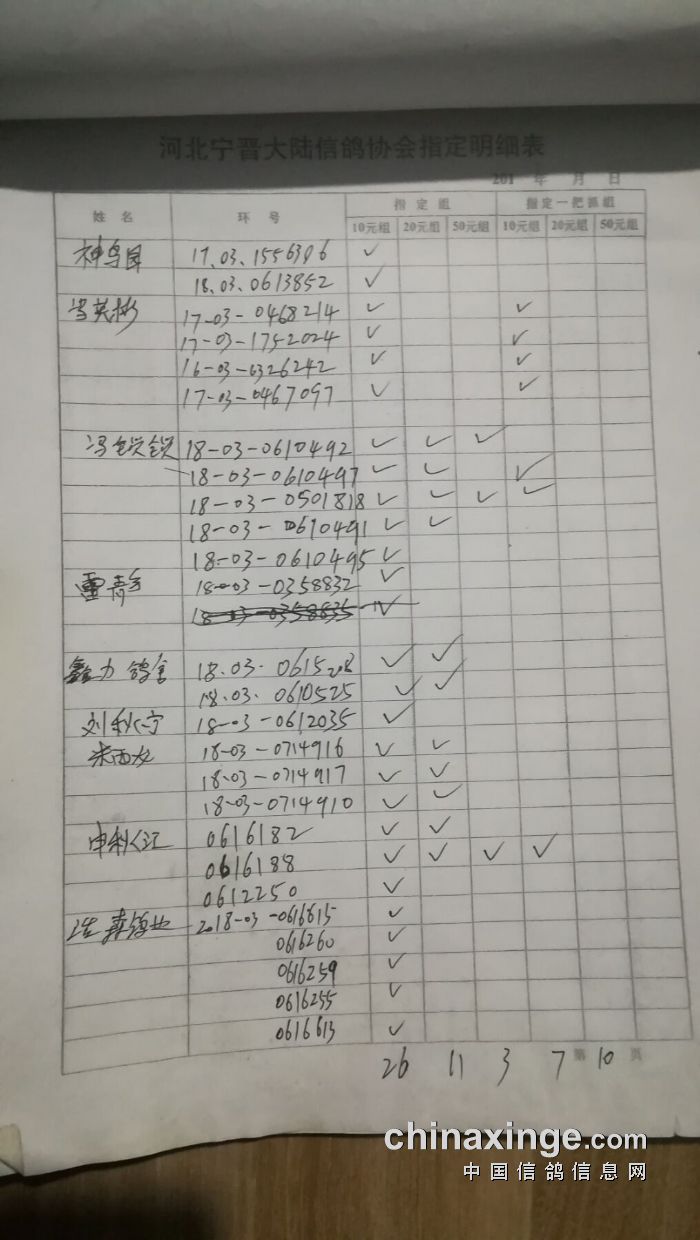 河北宁晋大陆信鸽协会指定明细表
201 年 月 日
姓名 环号 指定组 指定一把抓组
10元组 20元组 50元组 10元组 20元组 50元组
17.03.1556306 ✓
18.03.0613852 ✓
冯英彬 17-03-0468214 ✓ ✓
17-03-1752024 ✓ ✓
16-03-0326242 ✓ ✓
17-03-0467097 ✓ ✓
冯锁锁 18-03-0610492 ✓ ✓ ✓
18-03-0610497 ✓ ✓ ✓
18-03-0501818 ✓ ✓ ✓ ✓
18-03-0610491 ✓ ✓
18-03-0610495 ✓
雷青 18-03-0358832 ✓
18-03-0358835 ✓
鑫力鸽舍 18.03.0615208 ✓ ✓
18.03.0610525 ✓ ✓
刘秋宁 18-03-0612035 ✓
18-03-0714916 ✓ ✓
18-03-0714917 ✓ ✓
18-03-0714910 ✓ ✓
申利江 0616182 ✓ ✓
0616188 ✓ ✓ ✓ ✓
0612250 ✓
2018-03-0616615 ✓
0616260 ✓
0616259 ✓
0616255 ✓
0616613 ✓
26 11 3 7 第 10 页
chinaxinge.com
中国信鸽信息网